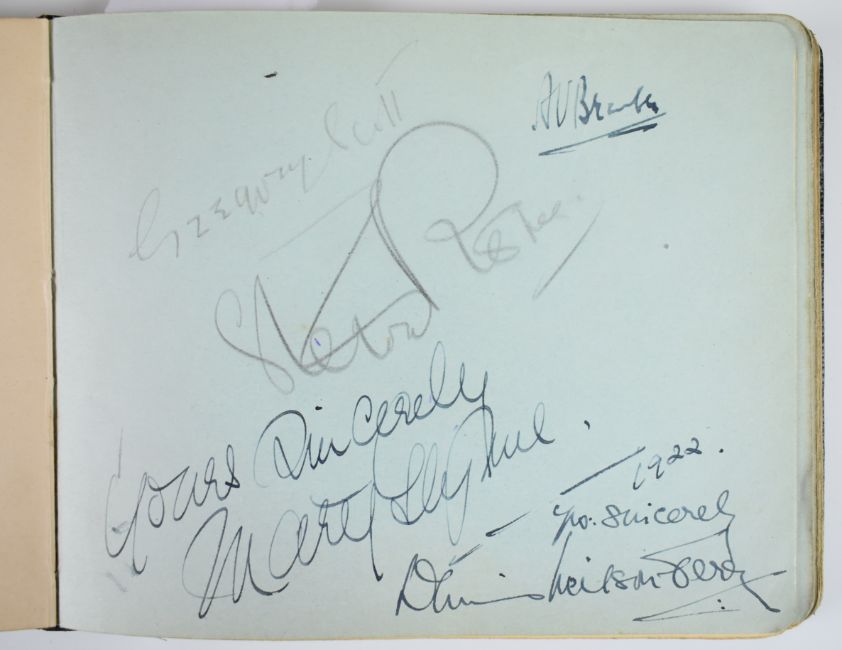 Gregory Scott
AVBramble
Stewart Rome
Yours Sincerely
Mary Glynne.
1922.
Yrs. Sincerely
Dennis Neilson-Terry